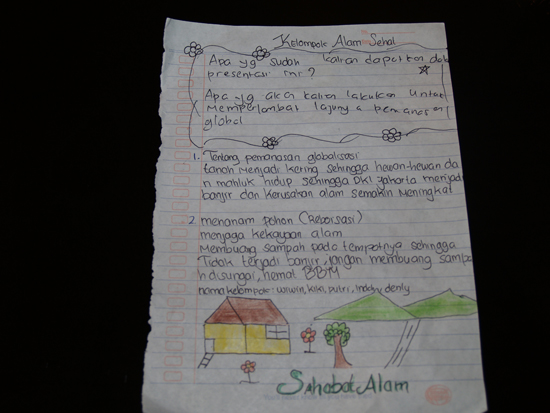 Kelompok Alam Sehat
Apa yg sudah kalian dapatkan dalam
presentasi ini?
Apa yg akan kalian lakukan untuk
memperlambat lajunya pemanasan
global
1. Tentang pemanasan globalisasi
tanah menjadi kering sehingga hewan-hewan da
n mahluk hidup sehingga DKI Jakarta menjadi
banjir dan kerusakan alam semakin meningkat
2. menanam pohon (Reboisasi)
menjaga kekayaan alam
Membuang sampah pada tempatnya sehingga
Tidak terjadi banjir, jangan membuang sampa
h disungai, hemat BBM
nama kelompok: wiwin, kiki, putri, Indah, denly
Sahabat Alam